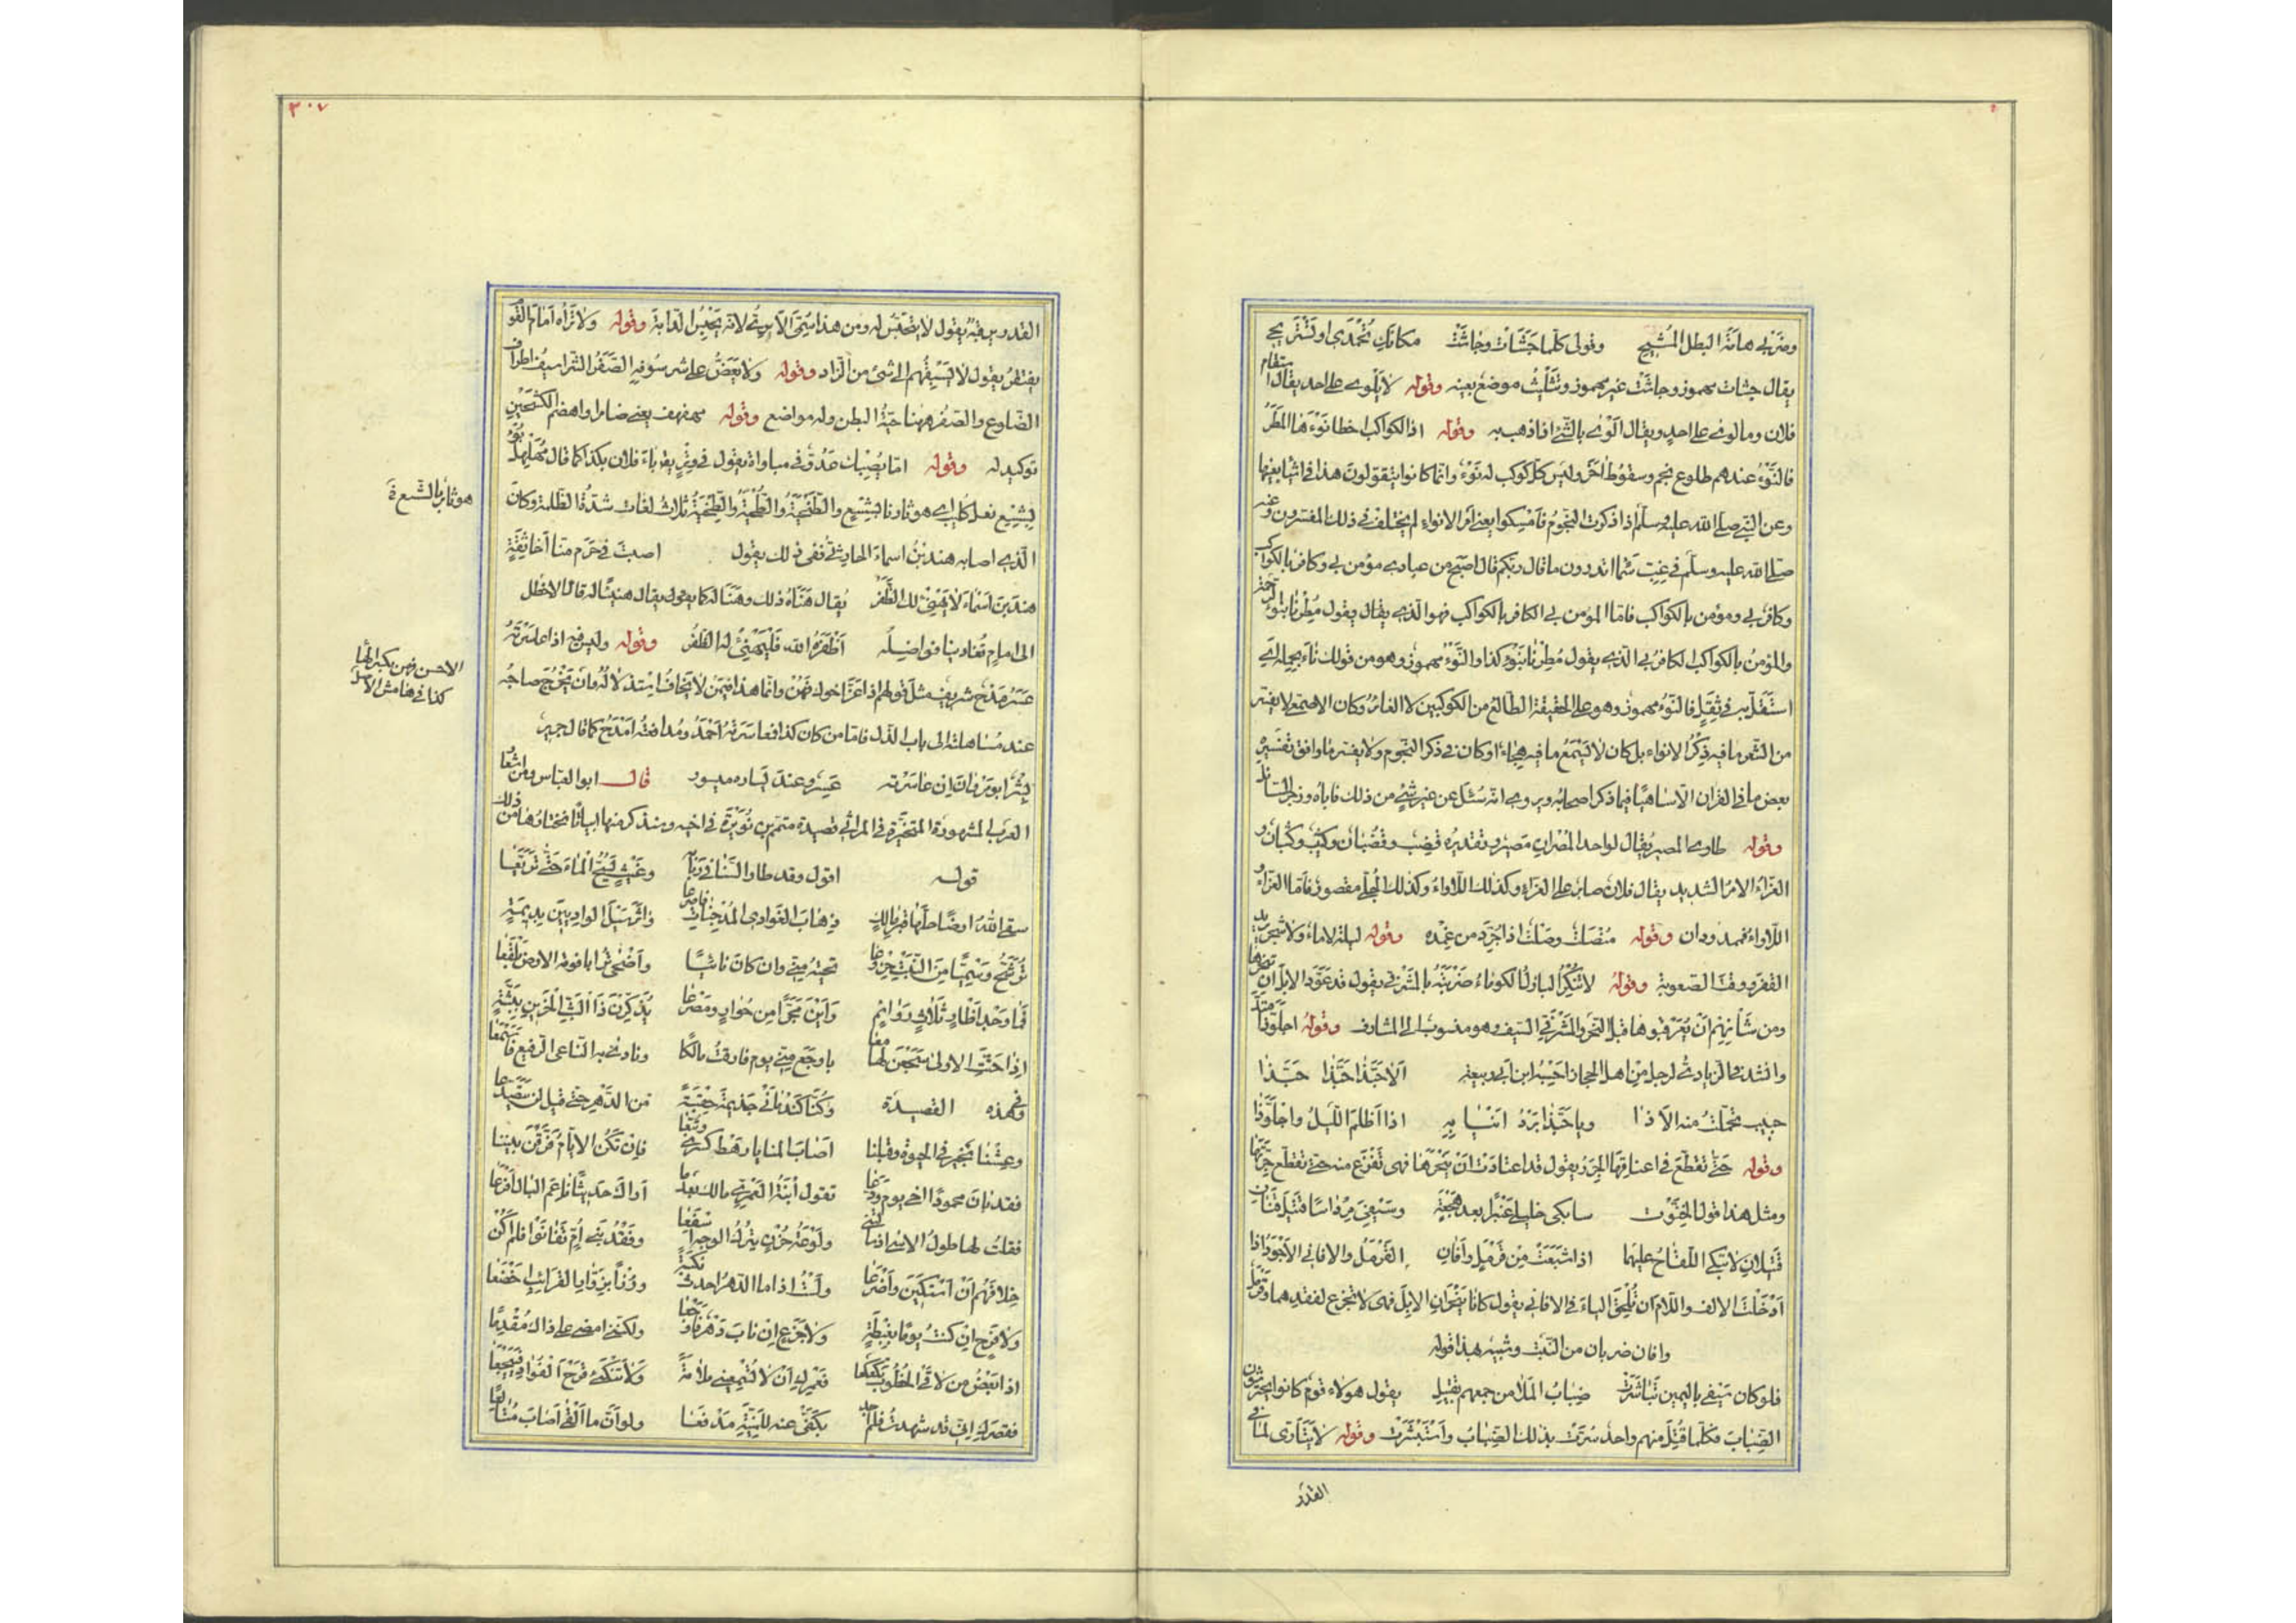 وضربى هامة البطل المُشيح وقولى كلما جَشَأت وجاشَتْ مكانكِ تُحمَدى او تستريحى
يقال جشات مهموز وجاشَتْ غير مهموز وتثليث موضع بعينه وقوله لا يَلْوى على احد يقال استقام
فلان وما لوى على احدٍ ويقال اَلْوى بالشئ اذا ذهب به وقوله اذا الكواكب اخطا نَوْءَها المَطَرُ
فالنَّوْءُ عندهم طلوع نجم وسقوط اٰخَرَ وليس كلّ كوكب له نوْءٌ وانما كانوا يقولون هذا فى اشيا بعينها
وعن النّبى صلى الله عليه وسلّم اذا ذكرت النجومُ فَامْسِكوا يعنى امر الانواءِ لم يختلف فى ذلك المفسرون وعنه
صلى الله عليه وسلّم فى غِبّ سَمَا اتدرون ما قال ربّكم قال اصبح من عبادى مؤمن بى وكافر بالكواكب
وكافر بى ومؤمن بالكواكب فامّا المؤمن بى الكافر بالكواكب فهو الّذى يقول مُطِرنا بنوء الرحمة
والمؤمنُ بالكواكب الكافر بى الّذى يقول مُطِرْنا بنَوْءِ كذا والنَّوْءُ مهموز وهو من قولك ناءَ بحِمله اى
استَقَلّ به فى ثِقَلٍ فالنَّوْءُ مهموز وهو على الحقيقة الطالع من الكوكبين لا الغائرُ وكان الاصمعى لا يفسّر
من الشّعر ما فيه ذِكْرُ الانواء بل كان لا يَسْمَعُ ما فيه هجاء او كان فى ذكر النجوم ولا يفسّر ما وافق تفسيرُه
بعض ما فى القران الّا ساهيًا فيما ذكر اصحابه ويروى انّه سُئل عن غير شئٍ من ذلك فاباه وزجر السائل
وقوله طاوى المصير يقال لواحد المُصْرانِ مَصير وتقديره قضيب وقُضْبان وكثيب وكثبان و
العزّاءُ الامرُ الشديد يقال فلان صابر على العزّاءِ وكذلك اللّاواءُ وكذلك الجُلّى مقصور فامّا العزّاءُ و
اللّاواءُ فممدودان وقوله مُنْصَلِتٌ وصَلْتٌ اذا جُرِّدَ من غِمْده وقوله ليلة لا ماءٌ ولا شجر يريد
القفرَ ووقتَ الصعوبة وقولهُ لا تُنْكِرُ البازلُ الكوماءُ ضَرْبَتَهُ بالمَشْرَفى يقول قد عَوّدَ الابلَ ان ينحرها
ومن شأنهم اَنْ يُعَرْقبوها قبل النحر والمَشْرَفِى السّيف وهو منسوب الى المشارف وقولهُ اجلَوّذ امتدّ
وانشدنى الزيادىّ لرجل من اهل الحجاز احسِبُهُ ابن ابى ربيعة اَلا حَبَّذا حَبَّذا حبّذا
حبيب تحمّلتُ منه الاَذا ويا حَبَّذا بَرْدُ انيابِهِ اذا اَظلمَ اللّيلُ واجلَوَّذا
وقوله حتّى تقطّعَ فى اعناقها الجِرَرُ يقول قد اعتادَتْ ان يَنْحَرَها فهى تَفْزَع منه حتى تقطّع جِرّتها
ومثل هذا قول الخِنَّوْت سابكى خليلى عَنْبرًا بعد هَجْعَةٍ وسَيْفِىَ مِرْداسًا قتيلَ قَنَان
قتيلان لا تبكى اللّقاحُ عليهما اذا شَبِعَتْ مِنْ قَرْمَلٍ واَفانِ القَرْمَلُ والافانى الاَجْوَدُ اذا
اَدْخَلْتَ الالف واللّام ان تُلْحِقَ الياءَ فى الافانى يقول كانا ينحران الابلَ فهى لا تجزع لفقدهما وقرمل
وافان ضربان من النّبت وشبيه بهذا قوله
فلو كان سَيْفى باليمين تَبَاشَرَتْ ضِبابُ المَلا من جمعهم بقتيل يقول هولاء قومٌ كانوا يحترشون
الضِبابَ فكلّما قُتِلَ منهم واحد سُرَّت بذلك الضّبابُ واَسْتَبْشَرَتْ وقوله لا يَتَأَرّى لما فى
القدر
٣٠٧
القدر يرقبُهُ يقول لا يتحبّس له ومن هذا سُمّى الاٰرىُّ لانّه يَحْبِسُ الدّابة وقوله ولا تَراهُ امامَ القَوْم
يقتفرُ يقول لا يَسْبِقُهم الى شئ من الزاد وقوله ولا يَعَضُّ على شرسُوفِهِ الصَّفَرُ الشراسيف اطراف
الضلوع والصَفَرُ ههنا حيّةُ البطن وله مواضع وقوله مهفهف يعنى ضامر واهضمُ الكشحَيْنِ
توكيد له وقوله امّا يُصِبْكَ عَدُوٌّ فى مباواة يقول فى وِترٍ يقال باءَ فلان بكذا كما قال مُهَلْهِلٌ بُؤْ
بشِسْع نعل كليب اى هو ثار نا بشسع والطَخْيَةُ والطُخْيَةُ والطِخْيَةُ ثلاثُ لغات شدّةُ الظلمة وكان
هو ثار بالشسع ة
الّذى اصابه هند بنُ اسماءَ الحارثىُّ ففى ذلك يقول اصبتَ فى حَرَمٍ منّا اَخا ثِقَةٍ
هندَ بن اَسْماءَ لا يَهْنِئْ لك الظَّفَرُ يُقال هَنَأَهُ ذلك وهَنَأ له كما يقول يقال هنيئا له قال الاخطل
الى امامٍ تُغادينا فواضلُه اَظْفَرَهُ الله فَلْيَهْنِئْ له الظَفَرُ وقوله وليس فيه اذا عاسَرْتَهُ
الاحسن فهن بكسر الها
كذا فى هامش الاصل
عَسَرٌ مَدْحٌ شريف مثل قولهم اذا عَزّ اخوك فَهُنْ وانّما هذا فيمَنْ لا تخافُ استذلالَهُ وان تَخْرُجَ صاحبُه
عند مُساهلته الى باب الذلّ فامّا من كان كذا فمُعاسَرتهُ اَحْمَدُ ومُدافعتُه اَمْدَحُ كما قال جرير
بِشْرٌ ابو مَرْوانَ اِن عاسَرْته عَسِر وعند يَساره ميسور قال ابو العبّاس ومن اشعار
العرب المشهورة المتخيَّرَة فى المراثى قصيدةُ متمّم بن نُوَيْرَةَ فى اخيه وسنذكر منها ابياتًا نختارُها من ذلك
قوله اقول وقد طار السَّنا فى رَبابهِ وغيثٌ يَسُحُّ الماءَ حتّى تَرَيَّعا
سقى اللهُ ارضًا حلّها قبرُ مالكٍ ذِهابَ الغَوادى المُدْجِناتِ فاَمْرَعا واٰثَرَ سَيْلَ الواديينِ بديمةٍ
تُرَشِّحُ وَسْمِيًّا مِنَ النَّبْتِ خِروَعا تحيّتهُ مِنّى وان كان نائيًا واَضْحى ترابا فوقه الارضُ بَلْقَعا
فما وَجْدُ اَظْاٰرٍ ثلاثٍ رَوَائِمٍ رَأَيْنَ مَجَرًّا من حُوارٍ ومَصْرَعا يُذَكِّرْنَ ذا البَثِّ الحزينِ ببَثِّهِ
اذا حَنّتِ الاولى سَجَعْنَ لها معا باوجَع مِنّى يوم فارقتُ مالكًا ونادى به الناعى الرفيع فَاَسْمَعا
وفى هذه القصيدة وكُنّا كَنَدْمانَىْ جَذيمةَ حِقْبَةً من الدّهر حتّى قيل لن يتَصَدّعا
وعِشْنا بخير فى الحيوة وقبلنا اَصابَ المنايا رهط كِسرى وتُبّعا فاِن تَكُن الايّامُ فَرّقْنَ بيننا
فقد بانَ محمودًا اخى يوم ودَّعا تقول اُبْنَةُ العَمْرِىّ مالك بعد ما اَراكَ حديثًا ناعِمَ البالِ اَفْرَعا
فقلتُ لها طولُ الاسى اذ سألتِنى ولَوْعَةُ حُزْنٍ يترك الوجهَ اَسْفَعا وفَقْدُ بنى اُمٍّ تَفانَوْا فلم اَكُنْ
خلافَهُم اَنْ اَستكينَ واَضْرَعا ولستُ اذا ما الدّهرُ احدث نَكْبَةً ورُزْأً بزوّارِ القرائب اَخْضَعا
ولا فَرِحٍ ان كنتُ يومًا بغِبْطَةٍ ولا جَزِعٍ اِن نابَ دَهْرٌ فاَوْجَعا ولكننى امضى على ذاك مُقْدِمًا
اذا بعضُ من لاقى الخطوبَ تكَعْكَعا قعيدَكِ اَنْ لا تُسْمِعينى ملامَةً ولا تَنْكَئى قَرْحَ الفُؤادِ فيَيْجَعا
فقصرَكِ اِنّى قد شهدتُ فلم اجد بكَفّىَّ عنه للمَنِيَّةِ مَدْفَعا ولو اَنّ ما اَلْقى اَصابَ مُتالعًا